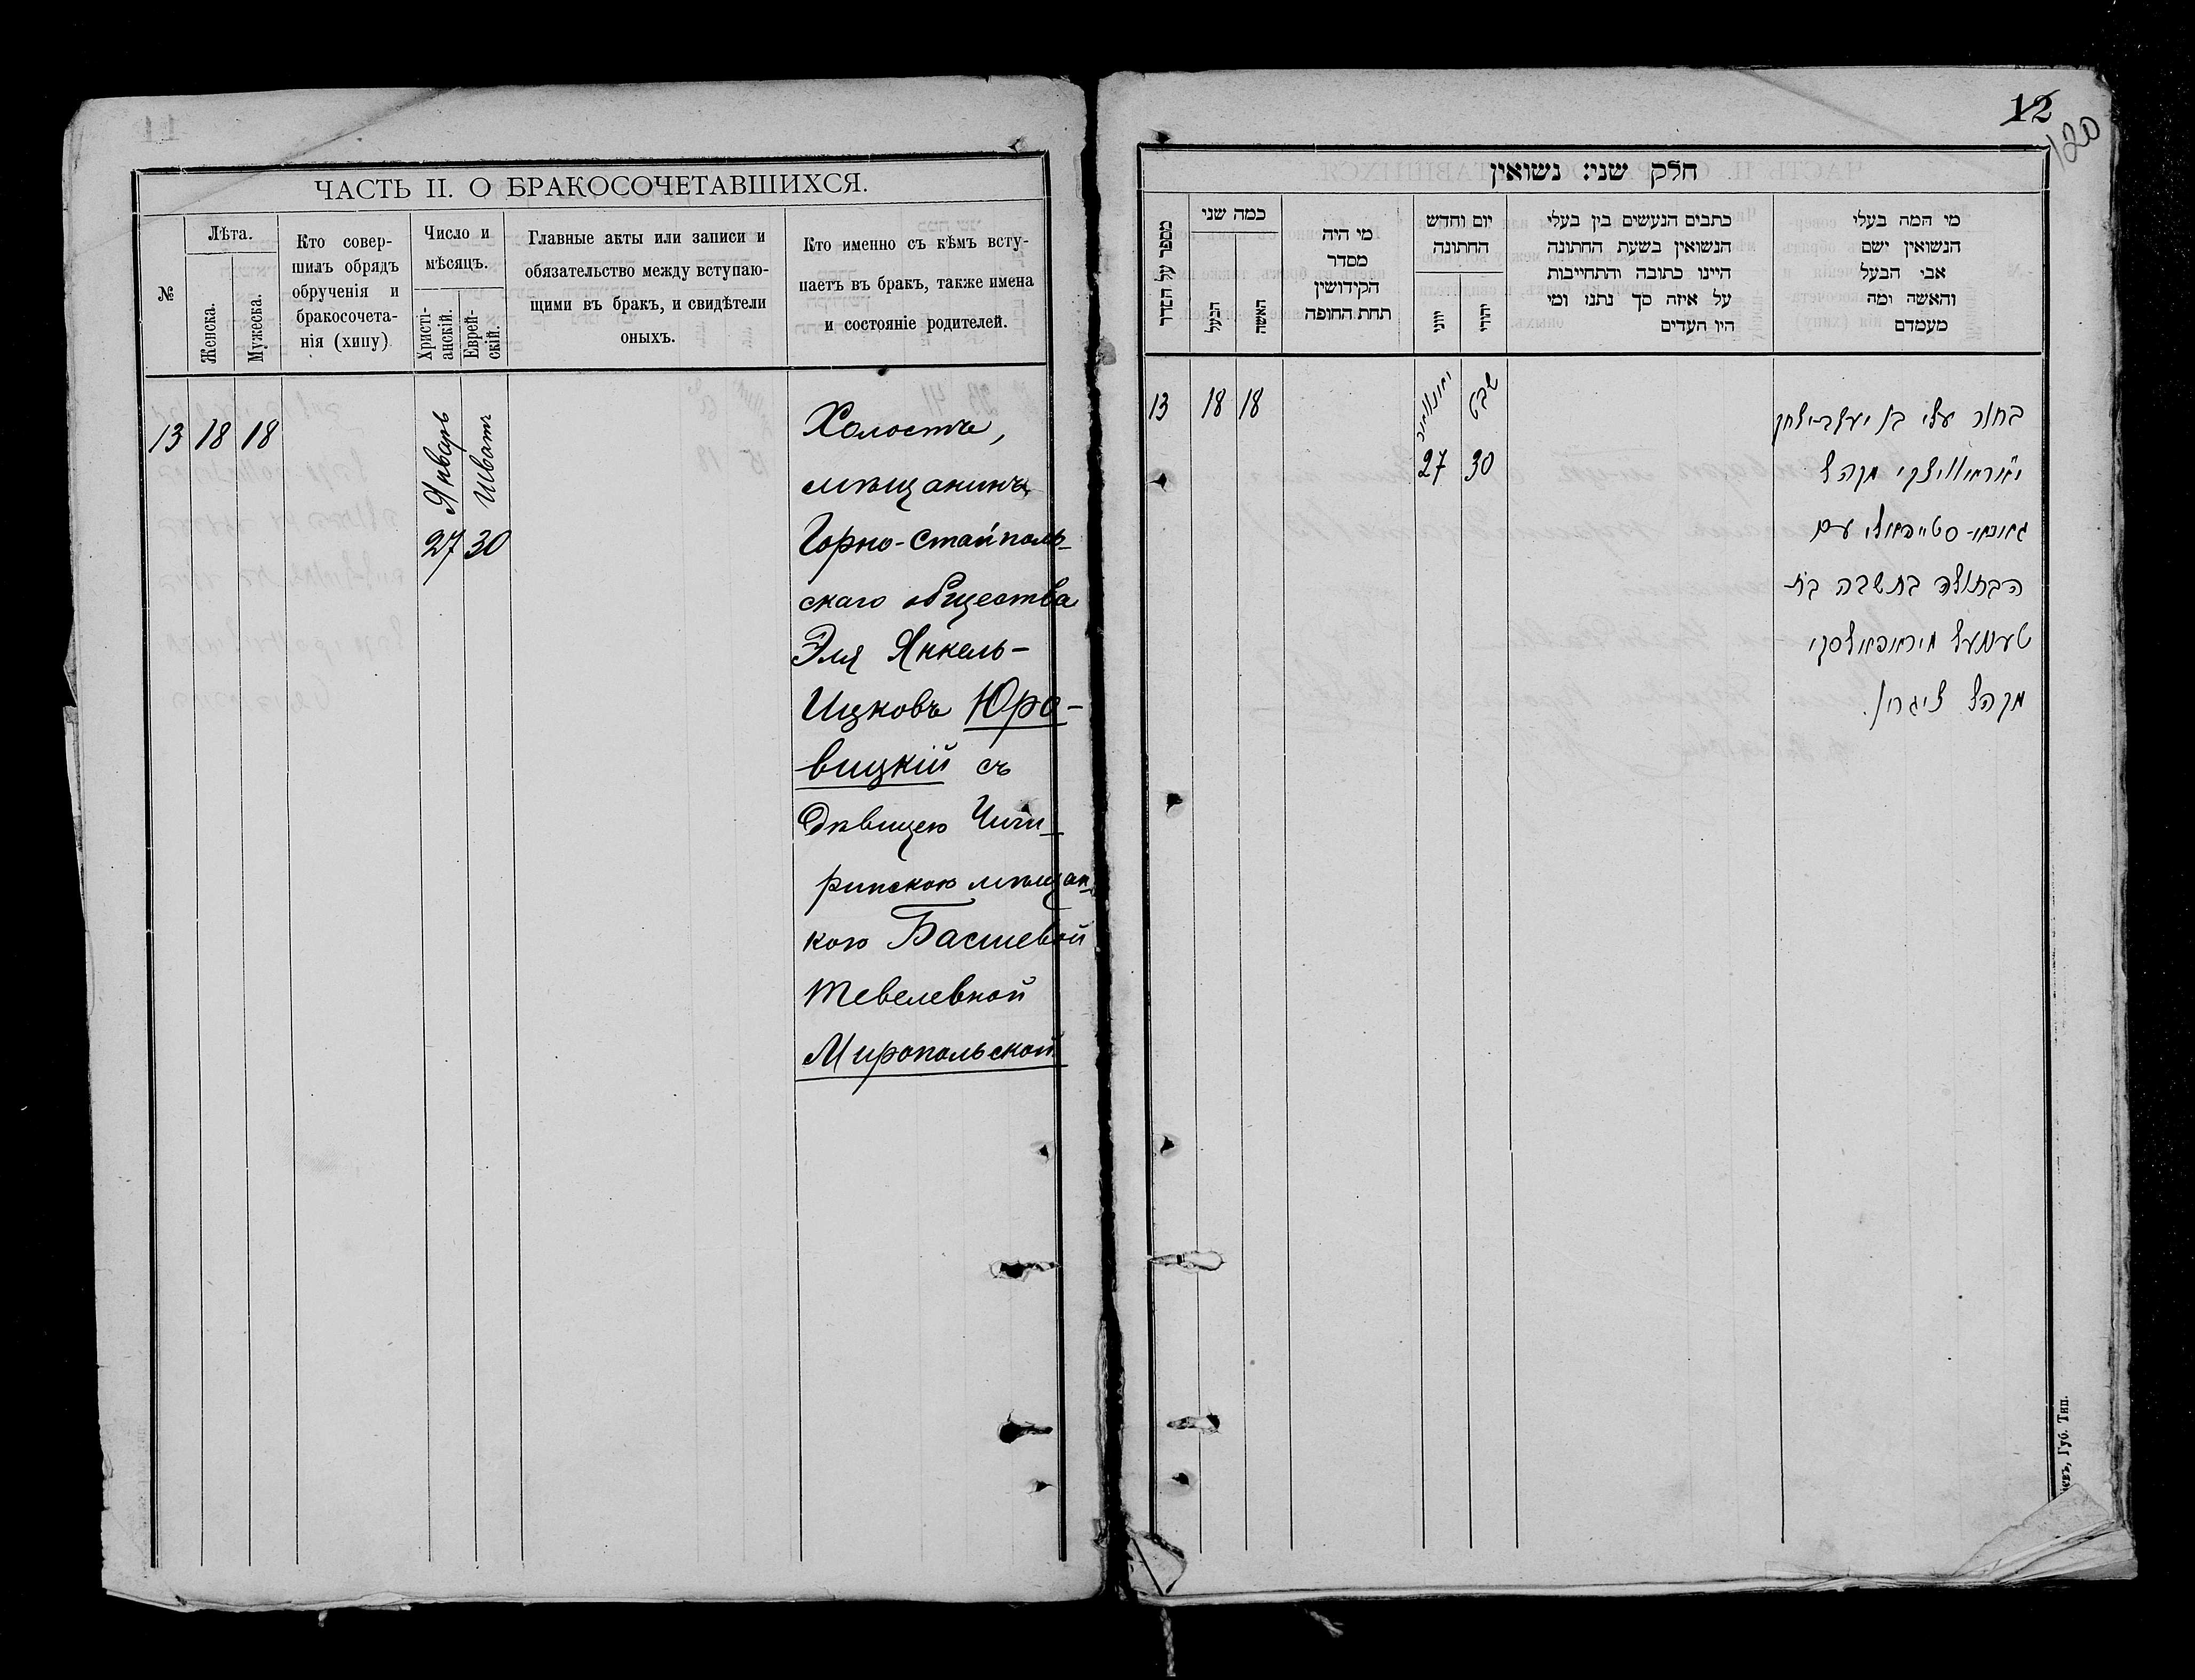 ЧАСТЬ II. О БРАКОСОЧЕТАВШИХСЯ.
№
Лѣта.
Женска.
Мужеска.
Кто совер-
шилъ обрядъ
обрученія и
бракосочета-
нія (хипу)
Число и
мѣсяцъ.
Христі-
анскій.
Еврей-
скій.
Главные акты или записи и
обязательство между вступаю-
щими въ бракъ, и свидѣтели
оныхъ.
Кто именно съ кѣмъ всту-
паетъ въ бракъ, также имена
и состояніе родителей.
13 18 18
Январь
Шватъ
27 30
Холостъ,
мѣщанинъ
Горно-Стайполь-
скаго общества
Эля Янкель-
Ицковъ Юро-
вицкій съ
Дѣвицею Чиги-
ринскою мѣщан-
кою Басшевой
Тевелевной
Миропольской
12
120
חלק שני: נשואין
מספר על הסדר
כמה שני
הבעל
האשה
מי היה
מסדר
הקידושין
תחת החופה
יום וחדש
החתונה
יווני
יהודי
כתבים הנעשים בין בעלי
הנשואין בשעת החתונה
היינו כתובה והתחייבות
על איזה סך נתנו ומי
היו העדים
מי המה בעלי
הנשואין ושם
אבי הבעל
והאשה ומה
מעמדם
13 18 18
יאנואר
שבט
27 30
בחור עלי בן יעקב-יצחק
יוראוויצקי מקהל
גארנא-סטייפאלי עם
הבתולה בתשבה בת
טעוועל מיראפאלסקי
מקהל ציגרין.
іевъ, Губ. Тип.